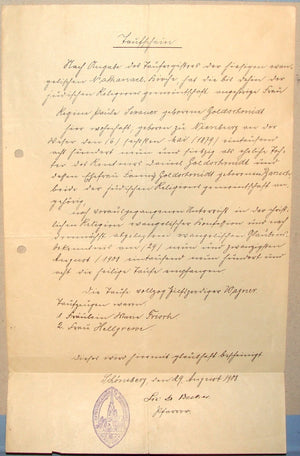 Taufschein
Nach Angabe des Taufregisters der hiesigen evan-
gelischen Nathanael-Kirche hat die bis dahin der
jüdischen Religionsgemeinschaft angehörige Frau
Regina Paula geborene Goldschmidt
hier wohnhaft geboren zu Nienburg an der
Weser den (6) sechsten (1879) eintausend
acht hundert neun und siebzig als eheliche Toch-
ter des Rentners Daniel Goldschmidt und
dessen Ehefrau Goldschmidt geborenen
beide der jüdischen Religionsgemeinschaft an-
gehörig
nach vorausgegangenem Unterricht in der christ-
lichen Religion evangelischen und nach
abgelegtem evangelischen Glaubens-
bekenntnis am (29) neun und zwanzigsten
August 1908 eintausend neun hundert und
acht die heilige Taufe empfangen
Die Taufe vollzog Hilfsprediger Wagner
Taufzeugen waren
1. Fräulein Marie
2. Frau Hellgrewe
Dieses wird hiermit glaubhaft bescheinigt
Schöneberg den 29 August 1908
Becker
Pfarrer